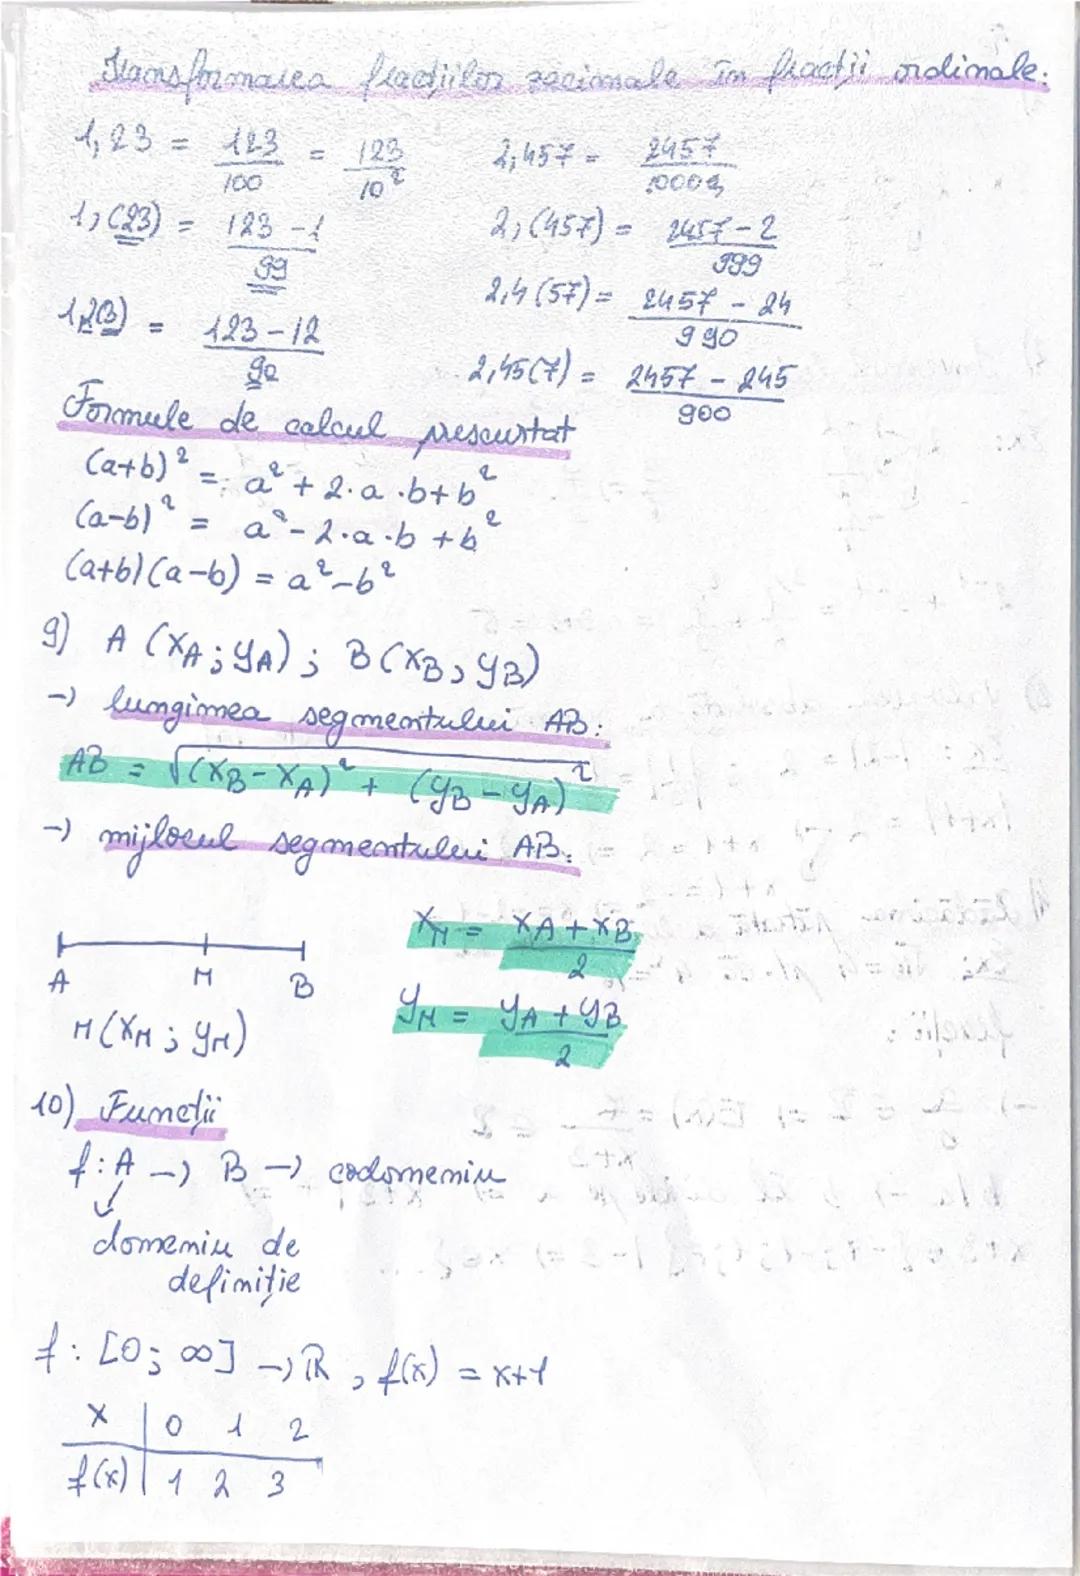 Transformarea fracțiilor zecimale în fracții ordinale:
1,23 = 123/100 = 123/10²
2,457 = 2457/1000
1,(23) = 123-1/99
2,(457) = 2457-2/999
2,4(57) = 2457-24/990
1,2(3) = 123-12/90
2,45(7) = 2457-245/900
Formule de calcul prescurtat
(a+b)² = a² + 2·a·b+b²
(a-b)² = a²-2·a·b+b²
(a+b)(a-b) = a²-b²
9) A (xA; yA); B(xB, yB)
→ lungimea segmentului AB:
AB = √(xB-xA)² + (yB-yA)²
→ mijlocul segmentului AB:
xM = xA+xB/2
A M B
yM = yA+yB/2
M(xM; yM)
10) Funcții
f:A → B → codomeniu
domeniu de
definiție
f: [0; ∞] → R, f(x) = x+1
x 0 1 2
f(x) 1 2 3